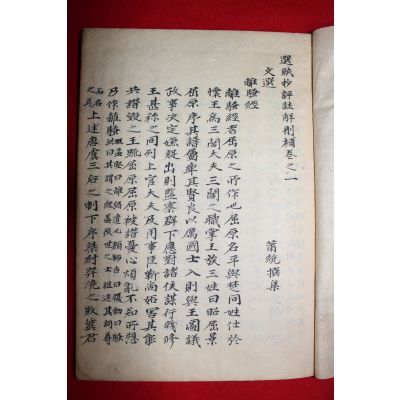 選賦抄評註解刪補卷之一
文選 蕭統撰集
離騷經
離騷經者屈原之所作也屈原名平與楚同姓仕於
懷王爲三閭大夫三閭之職掌王族三姓曰昭屈景
屈原序其譜屬率其賢良以厲國士入則與王圖議
政事決定嫌疑出則監察群下應對諸侯謀行職修
王甚珍之同列上官大夫及用事臣靳尚妬害其能
共譖毁之王疏屈原屈原被譖憂心煩亂不知所愬
乃作離騷 班孟堅曰離猶遭也顏師古曰擾動曰騷
上述唐虞三后之制下序桀紂羿澆之敗冀君